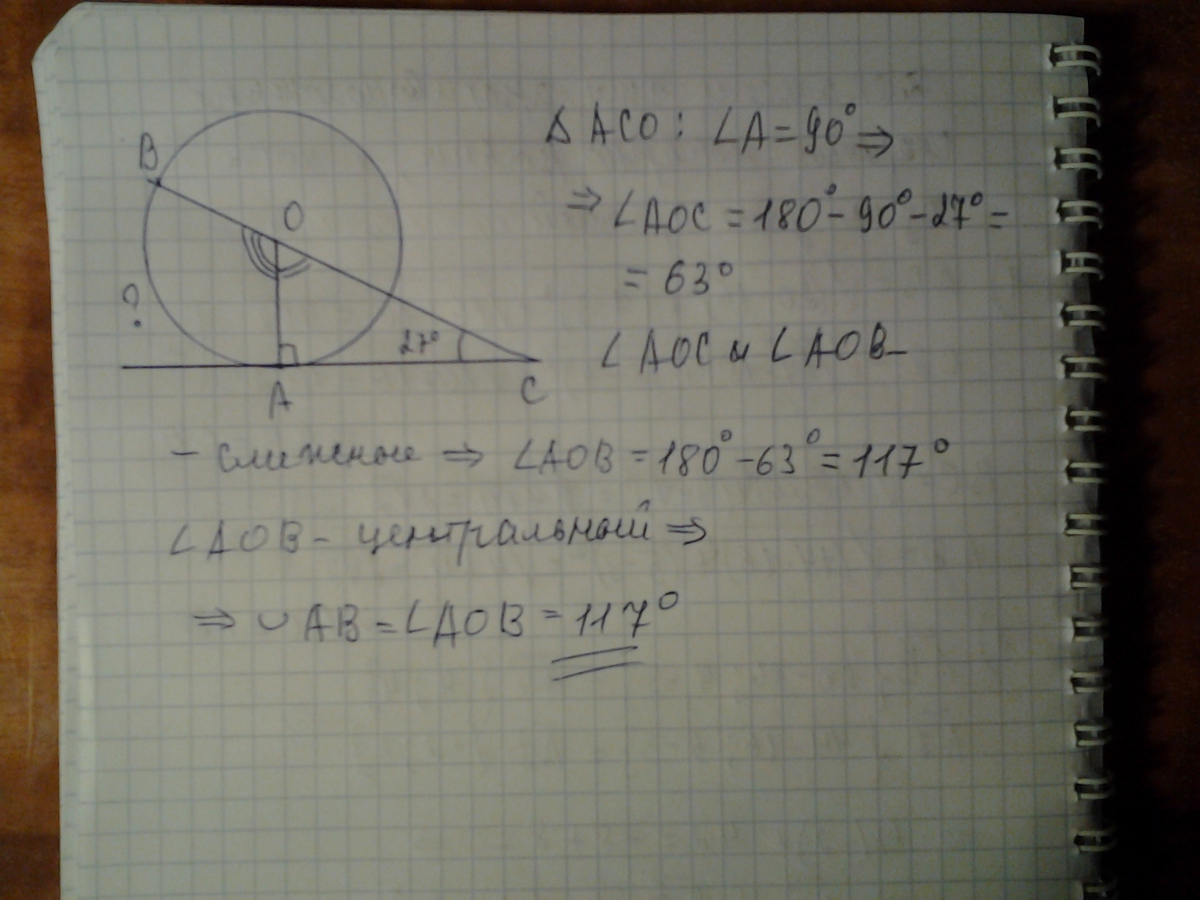 B
O
?
27°
A
C
Δ ACO : ∠A = 90° ⇒
⇒ ∠AOC = 180° - 90° - 27° =
= 63°
∠AOC и ∠AOB –
– смежные ⇒ ∠AOB = 180° - 63° = 117°
∠AOB – центральный ⇒
⇒ ◡ AB = ∠AOB = 117°